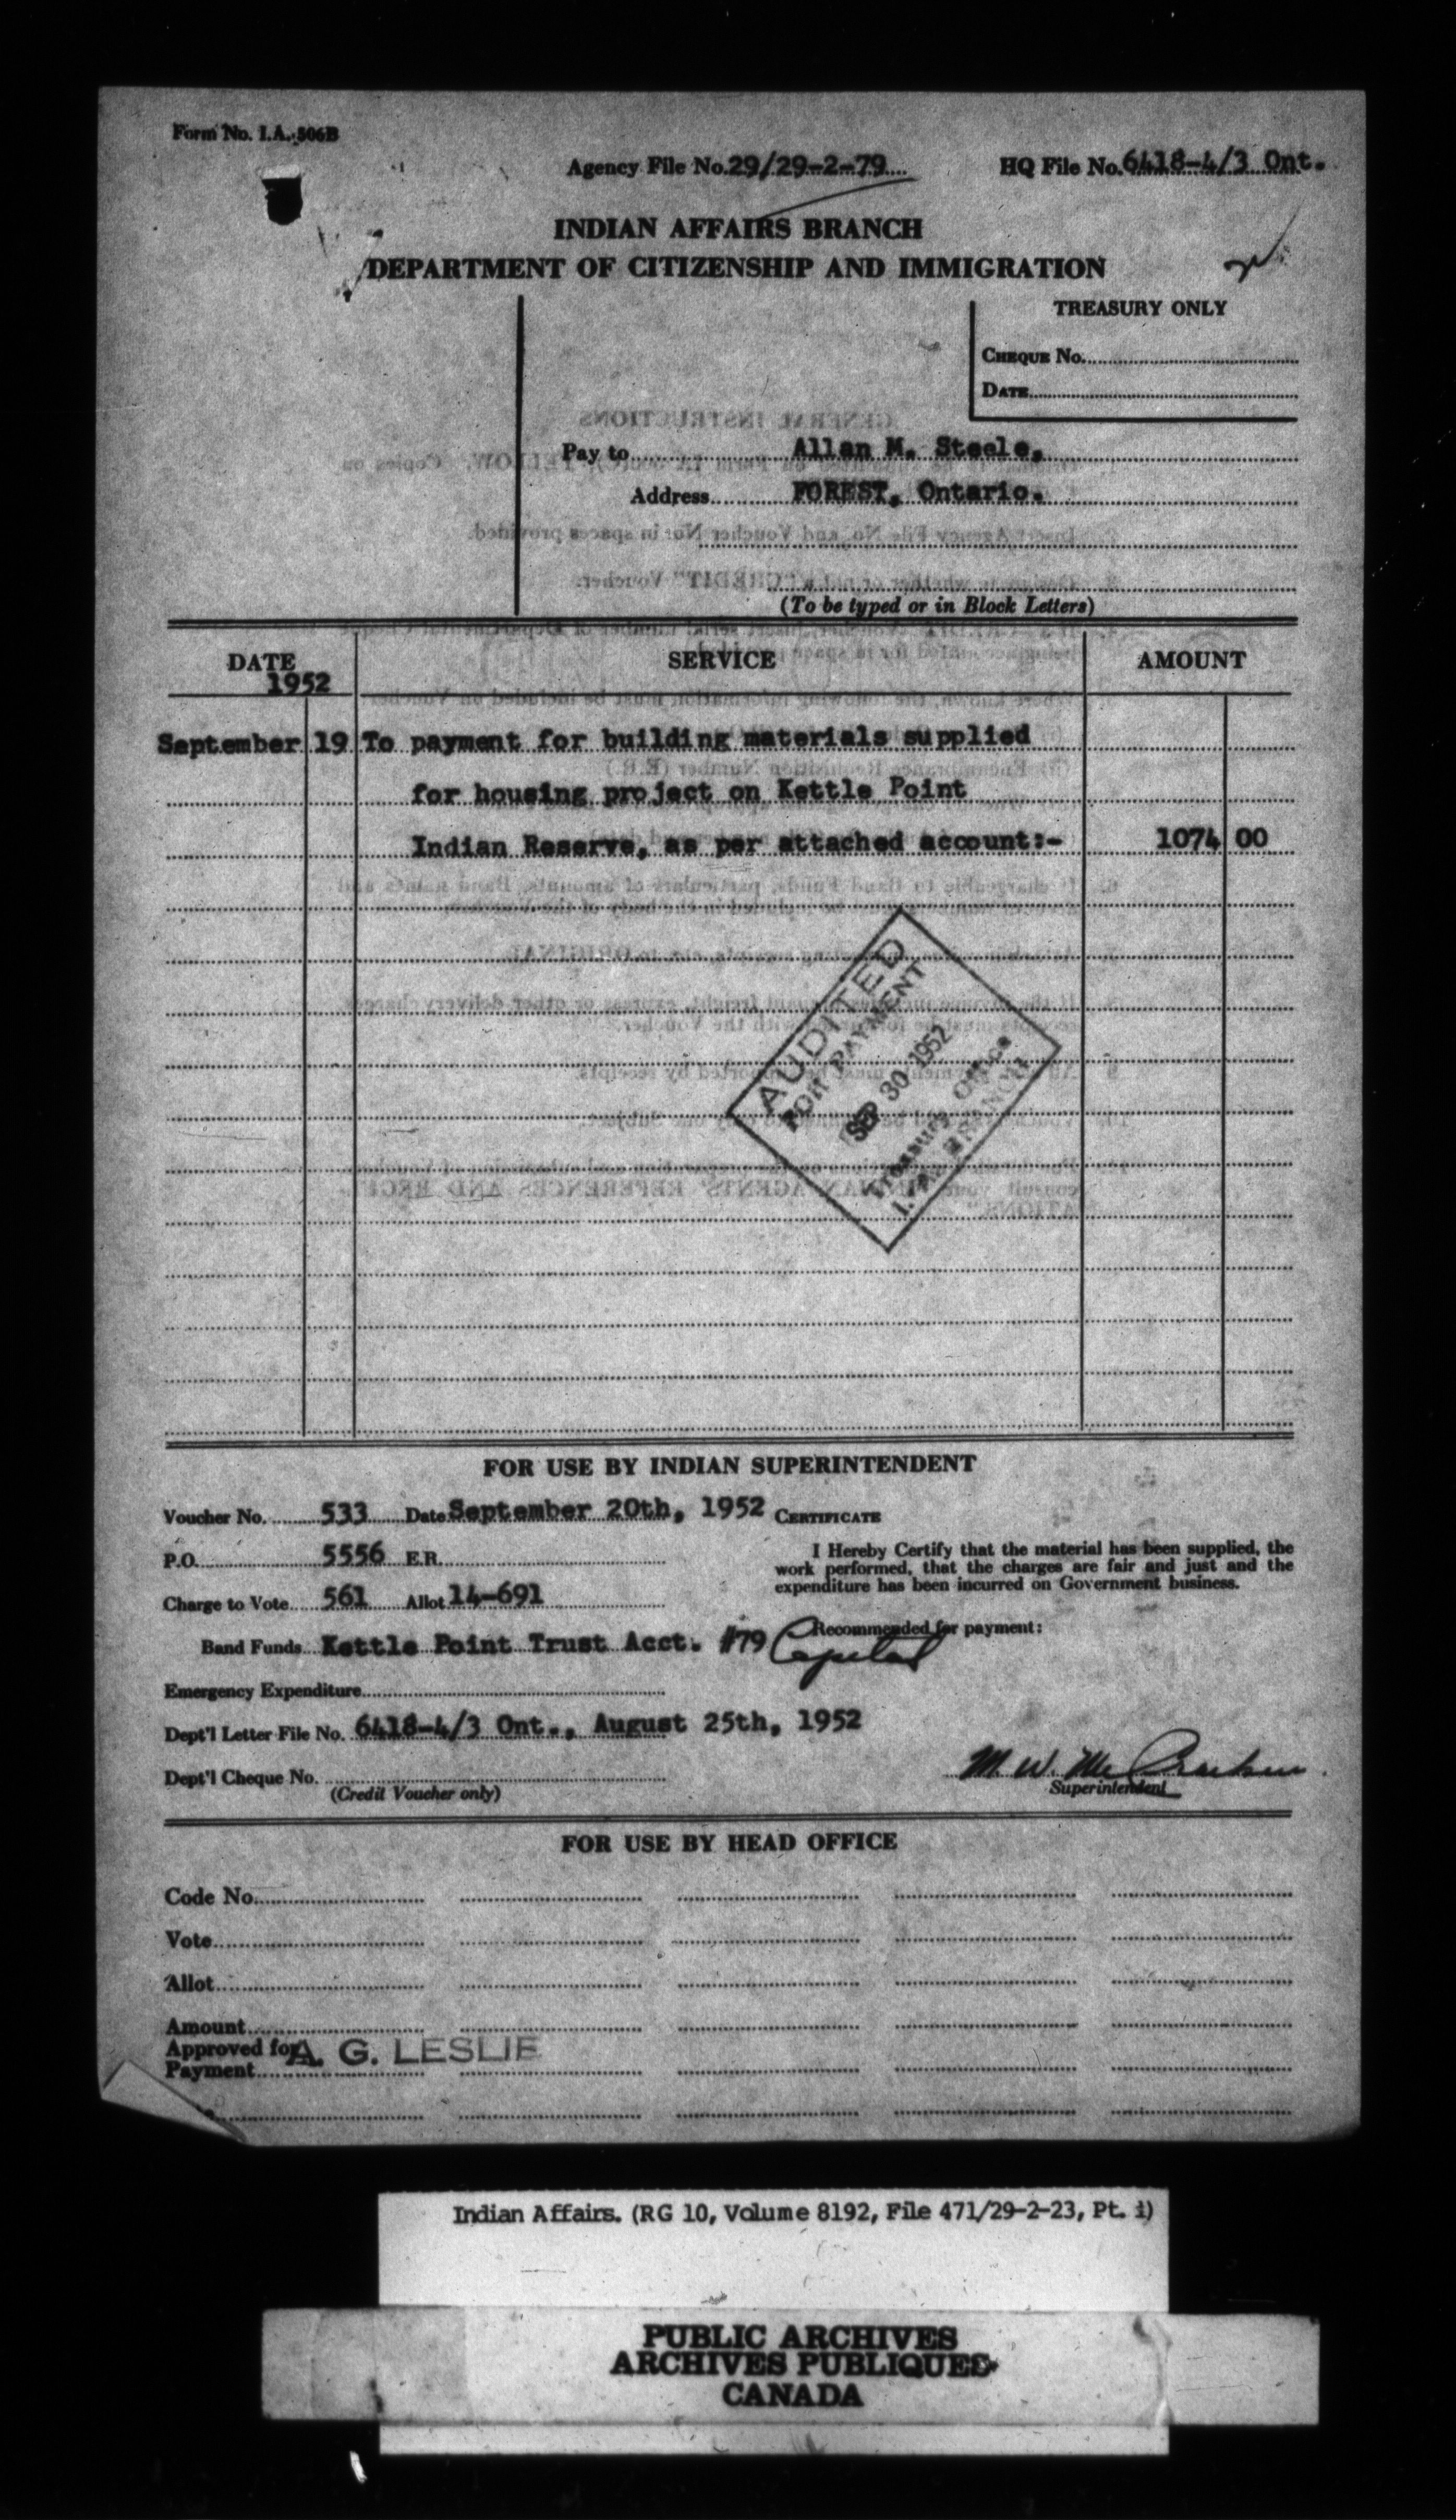 Form No. I.A. 506B
Agency File No. 29/29-2-79 HQ File No. 6418-4/3 Ont.
INDIAN AFFAIRS BRANCH
DEPARTMENT OF CITIZENSHIP AND IMMIGRATION
TREASURY ONLY
CHEQUE No.
DATE
Pay to Allan M. Steele,
Address FOREST, Ontario.
(To be typed or in Block Letters)
DATE SERVICE AMOUNT
1952
September 19 To payment for building materials supplied
for housing project on Kettle Point
Indian Reserve, as per attached account:- 1074 00
AUDITED
FOR PAYMENT
SEP 30 1952
Treasury Office
I.A. BRANCH
FOR USE BY INDIAN SUPERINTENDENT
Voucher No. 533 Date September 20th, 1952 CERTIFICATE
P.O. 5556 E.R.
I Hereby Certify that the material has been supplied, the
work performed, that the charges are fair and just and the
expenditure has been incurred on Government business.
Charge to Vote 561 Allot 14-691
Recommended for payment:
Band Funds Kettle Point Trust Acct. #79 Capital
Emergency Expenditure
Dept'l Letter File No. 6418-4/3 Ont., August 25th, 1952
Dept'l Cheque No.
(Credit Voucher only)
M. W. McCracken
Superintendent
FOR USE BY HEAD OFFICE
Code No.
Vote
Allot
Amount
Approved for A. G. LESLIE
Payment
Indian Affairs. (RG 10, Volume 8192, File 471/29-2-23, Pt. 1)
PUBLIC ARCHIVES
ARCHIVES PUBLIQUES
CANADA